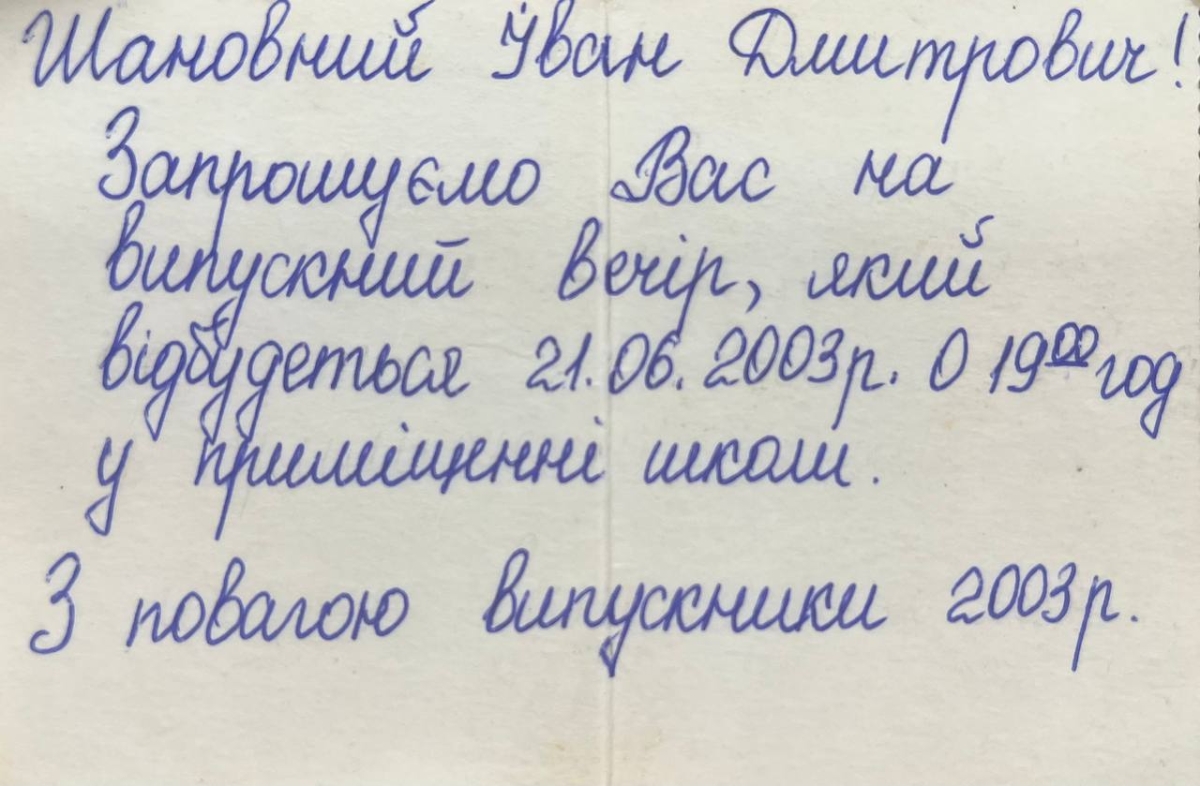 Шановний Іван Дмитрович!
Запрошуємо Вас на
випускний вечір, який
відбудеться 21.06.2003р. О 19⁰⁰ год
у приміщенні школи.
З повагою випускники 2003р.